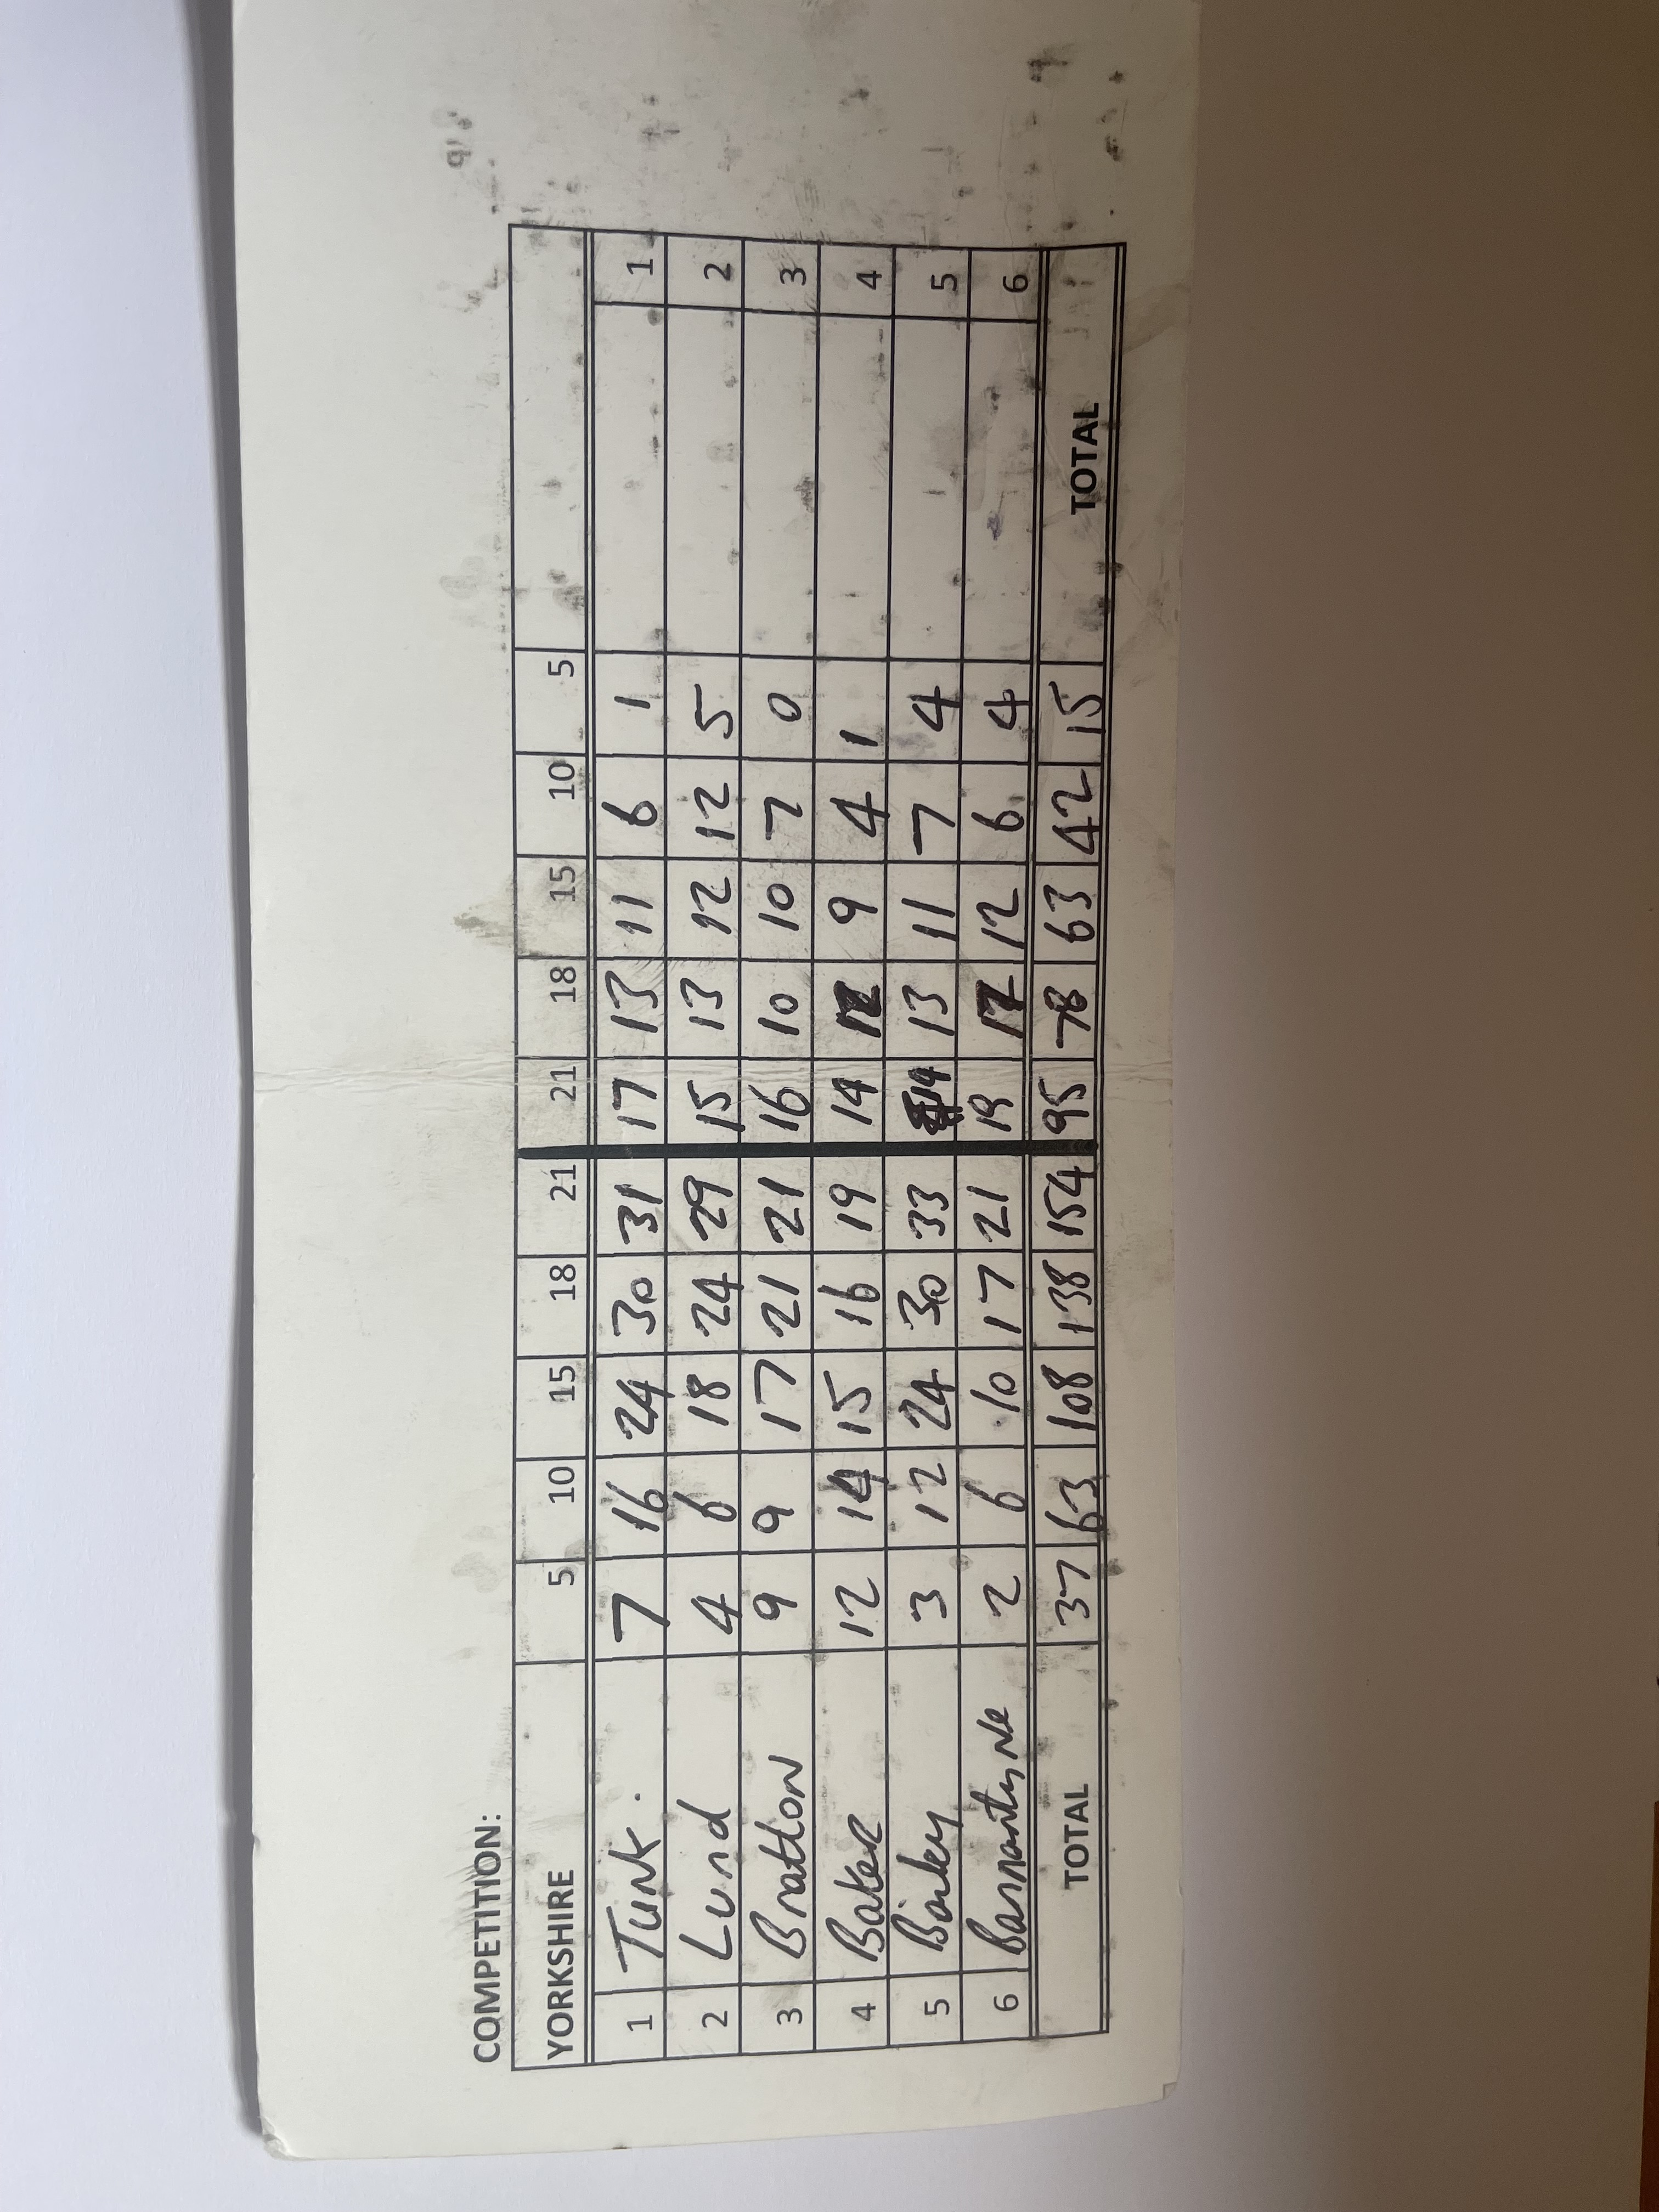 COMPETITION:
YORKSHIRE 5 10 15 18 21 21 18 15 10 5
1 Tunk. 7 16 24 30 31 17 13 11 6 1 1
2 Lund 4 6 18 24 29 15 13 12 12 5 2
3 Bratton 9 9 17 21 21 16 10 10 7 0 3
4 Baker 12 14 15 16 19 14 12 9 4 1 4
5 Barley 3 12 24 30 33 14 13 11 7 4 5
6 2 6 10 17 21 19 17 12 6 4 6
TOTAL 37 63 108 138 154 95 78 63 42 15 TOTAL